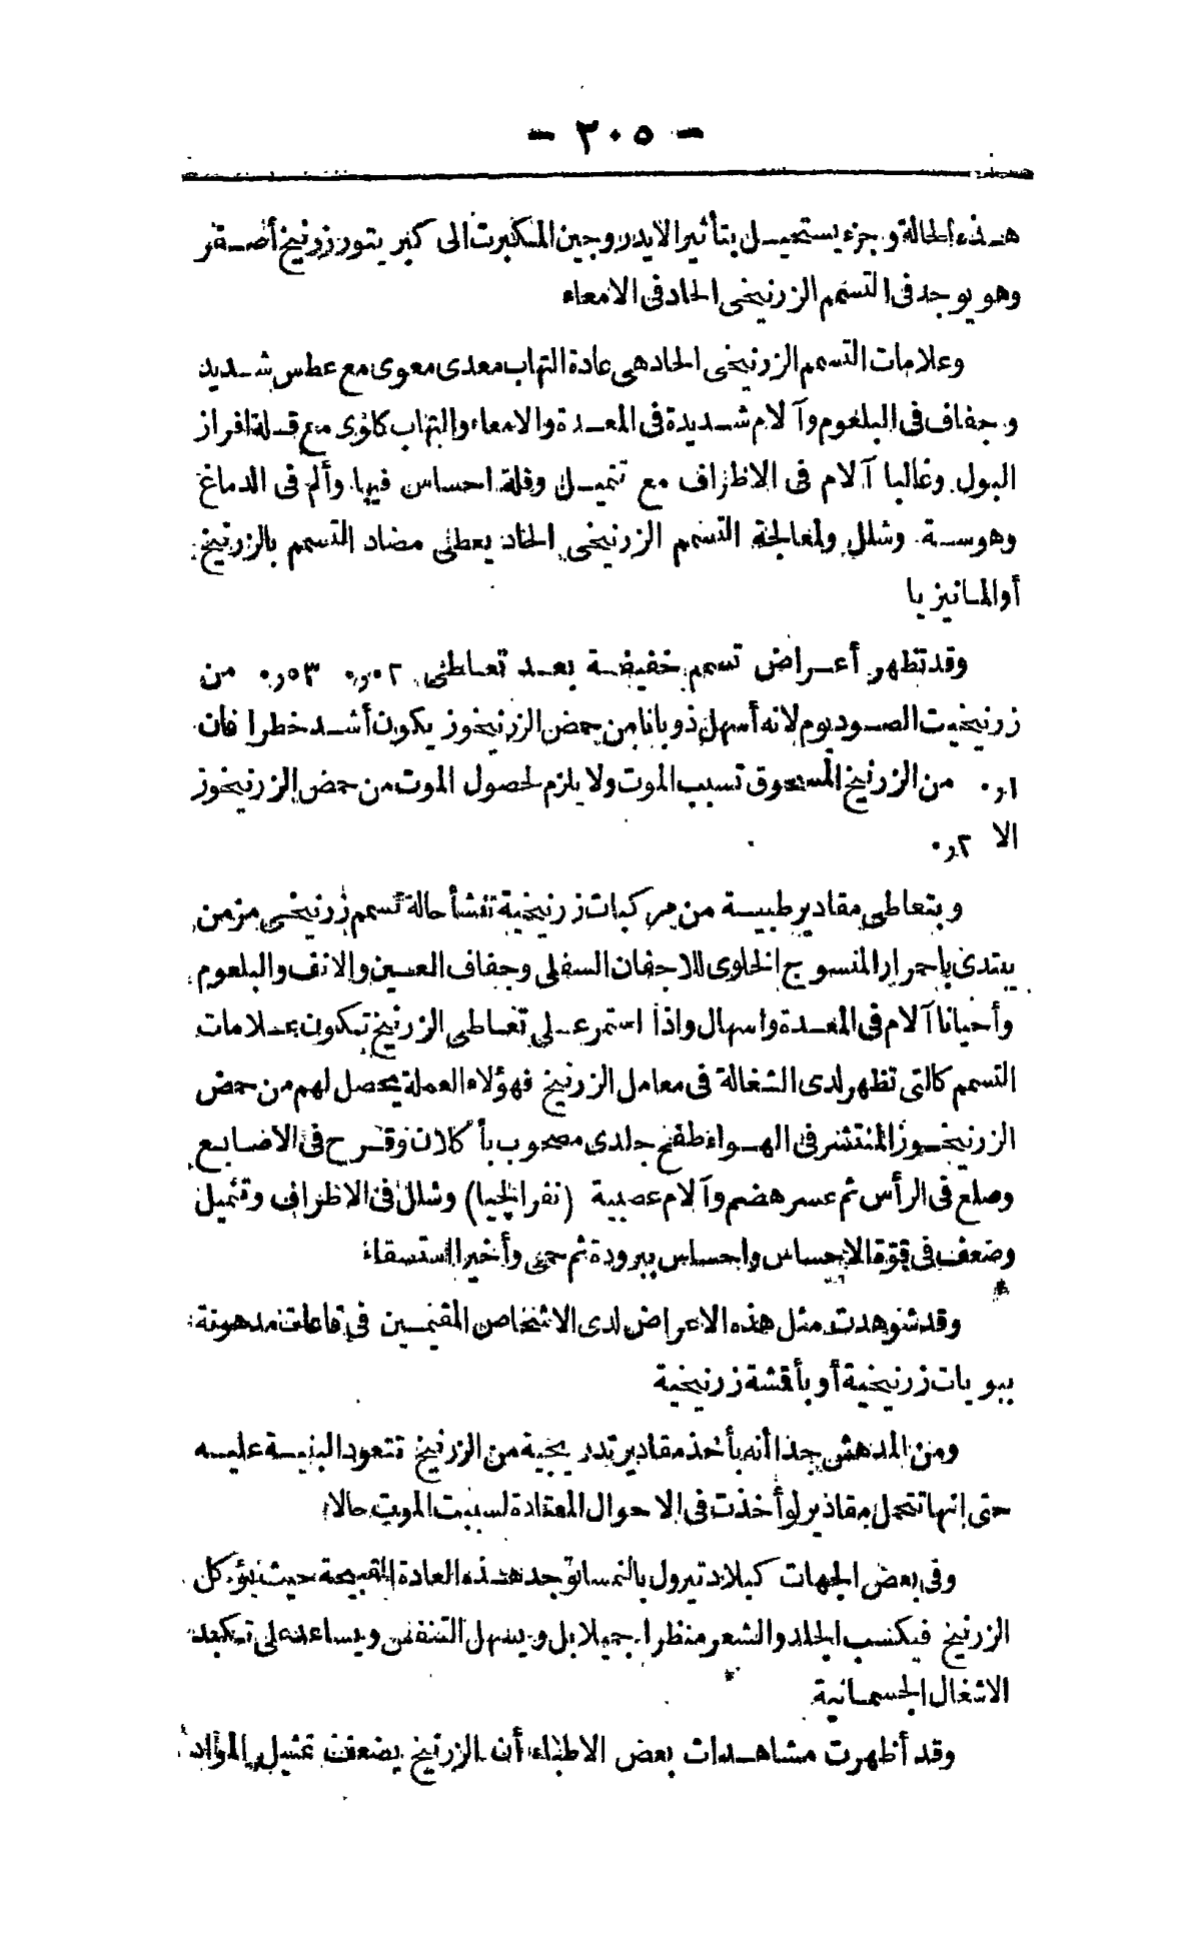 — ٢٠٥ —
هذه الحالة وجزء يستحيل بتأثير الايدروجين المكبرت الى كبريتور زرنيخ أصفر
وهو يوجد فى التسمم الزرنيخى الحاد فى الامعاء
وعلامات التسمم الزرنيخى الحاد هى عادة التهاب معدى معوى مع عطس شديد
وجفاف فى البلغوم وآلام شديدة فى المعدة والامعاء والتهاب كلوى مع قلة افراز
البول وغالبا آلام فى الاطراف مع تنميل وقلة احساس فيها وألم فى الدماغ
وهوسة وشلل ولمعالجة التسمم الزرنيخى الحاد يعطى مضاد التسمم بالزرنيخ
أو المانيزيا
وقد تظهر أعراض تسمم خفيفة بعد تعاطى ٠٫٠٢ ٠٫٠٥٣ من
زرنيخيت الصوديوم لانه أسهل ذوبانا من حمض الزرنيخوز يكون أشد خطرا فان
٠٫١ من الزرنيخ المسحوق تسبب الموت ولا يلزم لحصول الموت من حمض الزرنيخوز
الا ٠٫٢
وبتعاطى مقادير طبية من مركبات زرنيخية تنشأ حالة تسمم زرنيخى مزمن
يبتدئ باحمرار المنسوج الخلوى للاجفان السفلى وجفاف العين والانف والبلعوم
وأحيانا آلام فى المعدة واسهال واذا استمر على تعاطى الزرنيخ تكون علامات
التسمم كالتى تظهر لدى الشغالة فى معامل الزرنيخ فهؤلاء العملة يحصل لهم من حمض
الزرنيخوز المنتشر فى الهواء طفح جلدى مصحوب بأكلان وقرح فى الاصابع
وصلع فى الرأس ثم عسر هضم وآلام عصبية (نفرالجيا) وشلل فى الاطراف وتنميل
وضعف فى قوة الاحساس واحساس ببرودة ثم حمى وأخيرا استسقاء
وقد شوهدت مثل هذه الاعراض لدى الاشخاص المقيمين فى قاعات مدهونة
ببويات زرنيخية أو بأقشة زرنيخية
ومن المدهش جدا أنه بأخذ مقادير تدريجية من الزرنيخ تتعود البنية عليه
حتى انها تتحمل مقادير لو أخذت فى الاحوال المعتادة لسببت الموت حالا
وفى بعض الجهات كبلاد تيرول بالنمسا توجد هذه العادة القبيحة حيث يؤكل
الزرنيخ فيكسب الجلد والشعر منظرا جميلا بل ويسهل التنفس ويساعد على تكبد
الاشغال الجسمانية
وقد أظهرت مشاهدات بعض الاطباء أن الزرنيخ يضعف تمثيل المواد